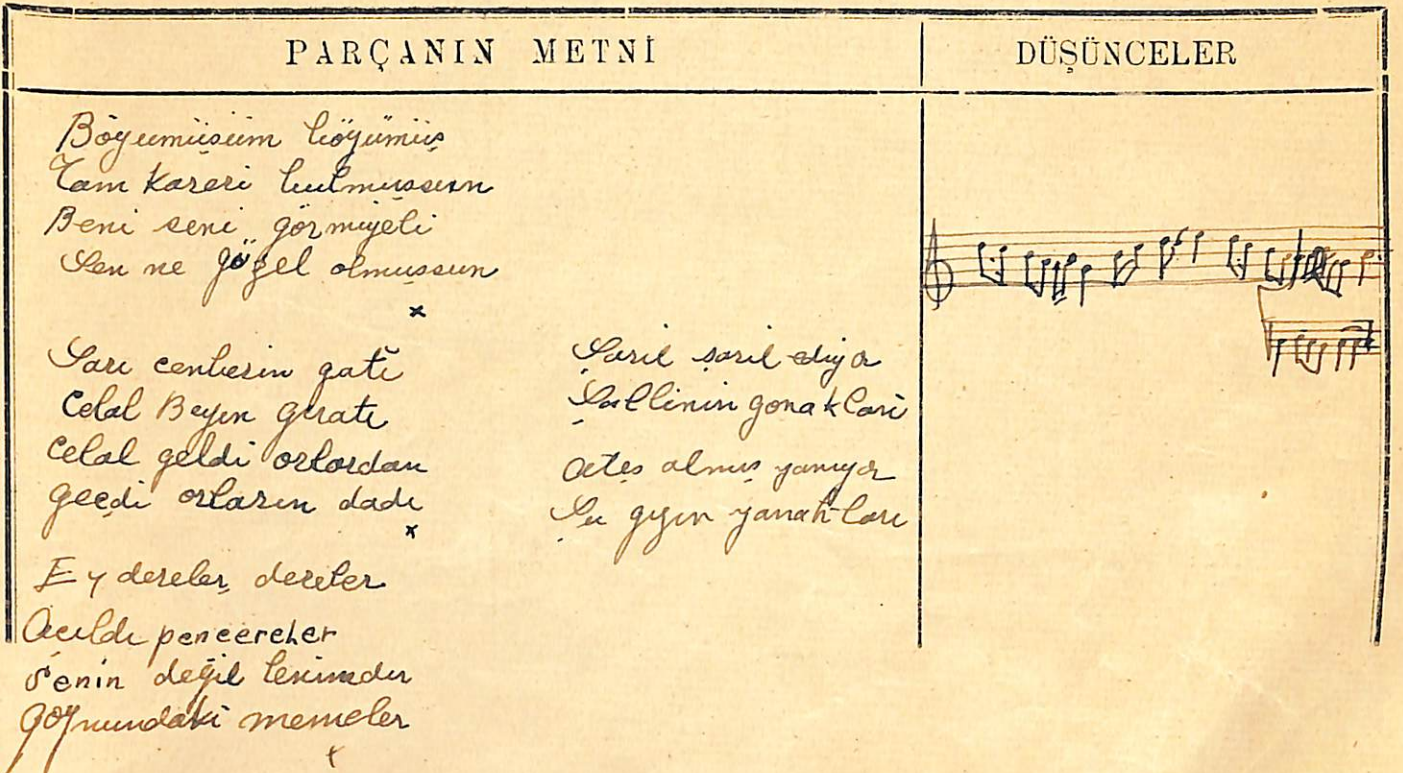 PARÇANIN METNİ
DÜŞÜNCELER
Böyumüşüm böyümüş
Tam kareri bulmuşsun
Beni seni görmiyeli
Sen ne gözel olmuşsun
x
Sarı cenberin gatı
Celal Beyin gıratı
Celal geldi orlordan
geçdi orların dadı
x
Ey dereler dereler
Açıldı pencereler
Senin değil benimdir
goynundaki memeler
x
Şaril şaril ediyor
Şallinin gonakları
Ateş almış yanıyor
Şu gızın yanakları